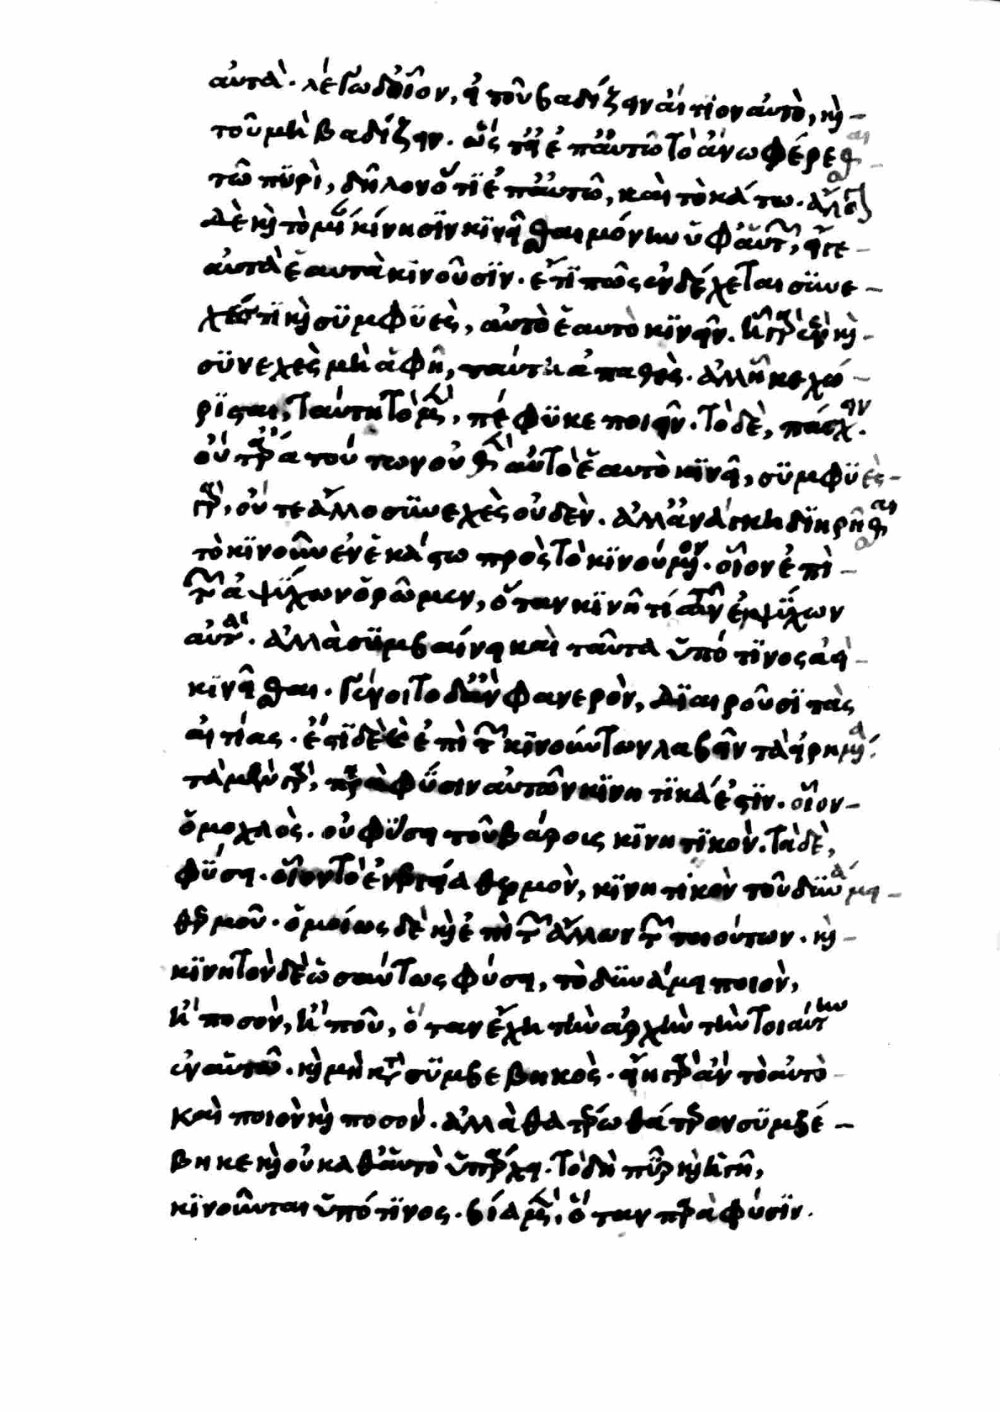 αὐτά· λέγω δ' οἷον, εἰ τοῦ βαδίζειν αἴτιον αὐτὸ, κὶ
τοῦ μὴ βαδίζειν· ὥστ' εἰ ἐπ' αὐτῶ τὸ ἄνω φέρεσθαι
τῶ πυρὶ, δῆλον ὅτι ἐπ' αὐτῶ, καὶ τὸ κάτω· ἄλογον
δὲ κὶ τὸ μίαν κίνησιν κινεῖσθαι μόνην ὑφ' αὑτῶν, εἴγε
αὐτὰ ἑαυτὰ κινοῦσιν· ἔτι πῶς ἐνδέχεται συνε
χές τι κὶ συμφυὲς, αὐτὸ ἑαυτὸ κινεῖν. ἧ γὰρ ἓν κὶ
συνεχὲς μὴ ἁφῆ, ταύτη ἀπαθές· ἀλλ' ἧ κεχώ
ρισται, ταύτη τὸ μὲν, πέφυκε ποιεῖν· τὸ δὲ, πάσχειν.
οὔτ' ἄρα τούτων οὐθὲν αὐτὸ ἑαυτὸ κινεῖ, συμφυὲς
γάρ, οὔτε ἄλλο συνεχὲς οὐδέν. ἀλλ' ἀνάγκη διῃρῆσθαι
τὸ κινοῦν ἐν ἑκάστω πρὸς τὸ κινούμενον· οἷον ἐπὶ
τῶν ἀψύχων ὁρῶμεν, ὅταν κινῆ τί τῶν ἐμψύχων
αὐτά· ἀλλὰ συμβαίνει καὶ ταῦτα ὑπό τινος ἀεὶ
κινεῖσθαι· γένοιτο δ' ἂν φανερὸν, διαιροῦσι τὰς
αἰτίας· ἔστι δὲ κὶ ἐπὶ τῶν κινούντων λαβεῖν τὰ εἰρημένα.
τὰ μὲν γὰρ, παρὰ φύσιν αὐτῶν κινητικά ἐστιν· οἷον
ὁ μοχλὸς· οὐ φύσει τοῦ βάρους κινητικὸν. τὰ δὲ,
φύσει· οἷον τὸ ἐνεργεία θερμὸν, κινητικὸν τοῦ δυνάμει
θερμοῦ· ὁμοίως δὲ κὶ ἐπὶ τῶν ἄλλων τῶν τοιούτων· κὶ
κινητὸν δὲ ὡσαύτως φύσει, τὸ δυνάμει ποιὸν,
ἢ ποσὸν, ἢ ποῦ, ὅταν ἔχη τὴν ἀρχὴν τὴν τοιαύτην
ἐν αὑτῶ· κὶ μὴ κατὰ συμβεβηκὸς· εἴη γὰρ ἂν τὸ αὐτὸ
καὶ ποιὸν κὶ ποσόν· ἀλλὰ θατέρω θάτερον συμβέ
βηκε κὶ οὐ καθ' αὑτὸ ὑπάρχει. τὸ δὴ πῦρ κὶ ἡ γῆ,
κινοῦνται ὑπό τινος· βία μὲν, ὅταν παρὰ φύσιν.